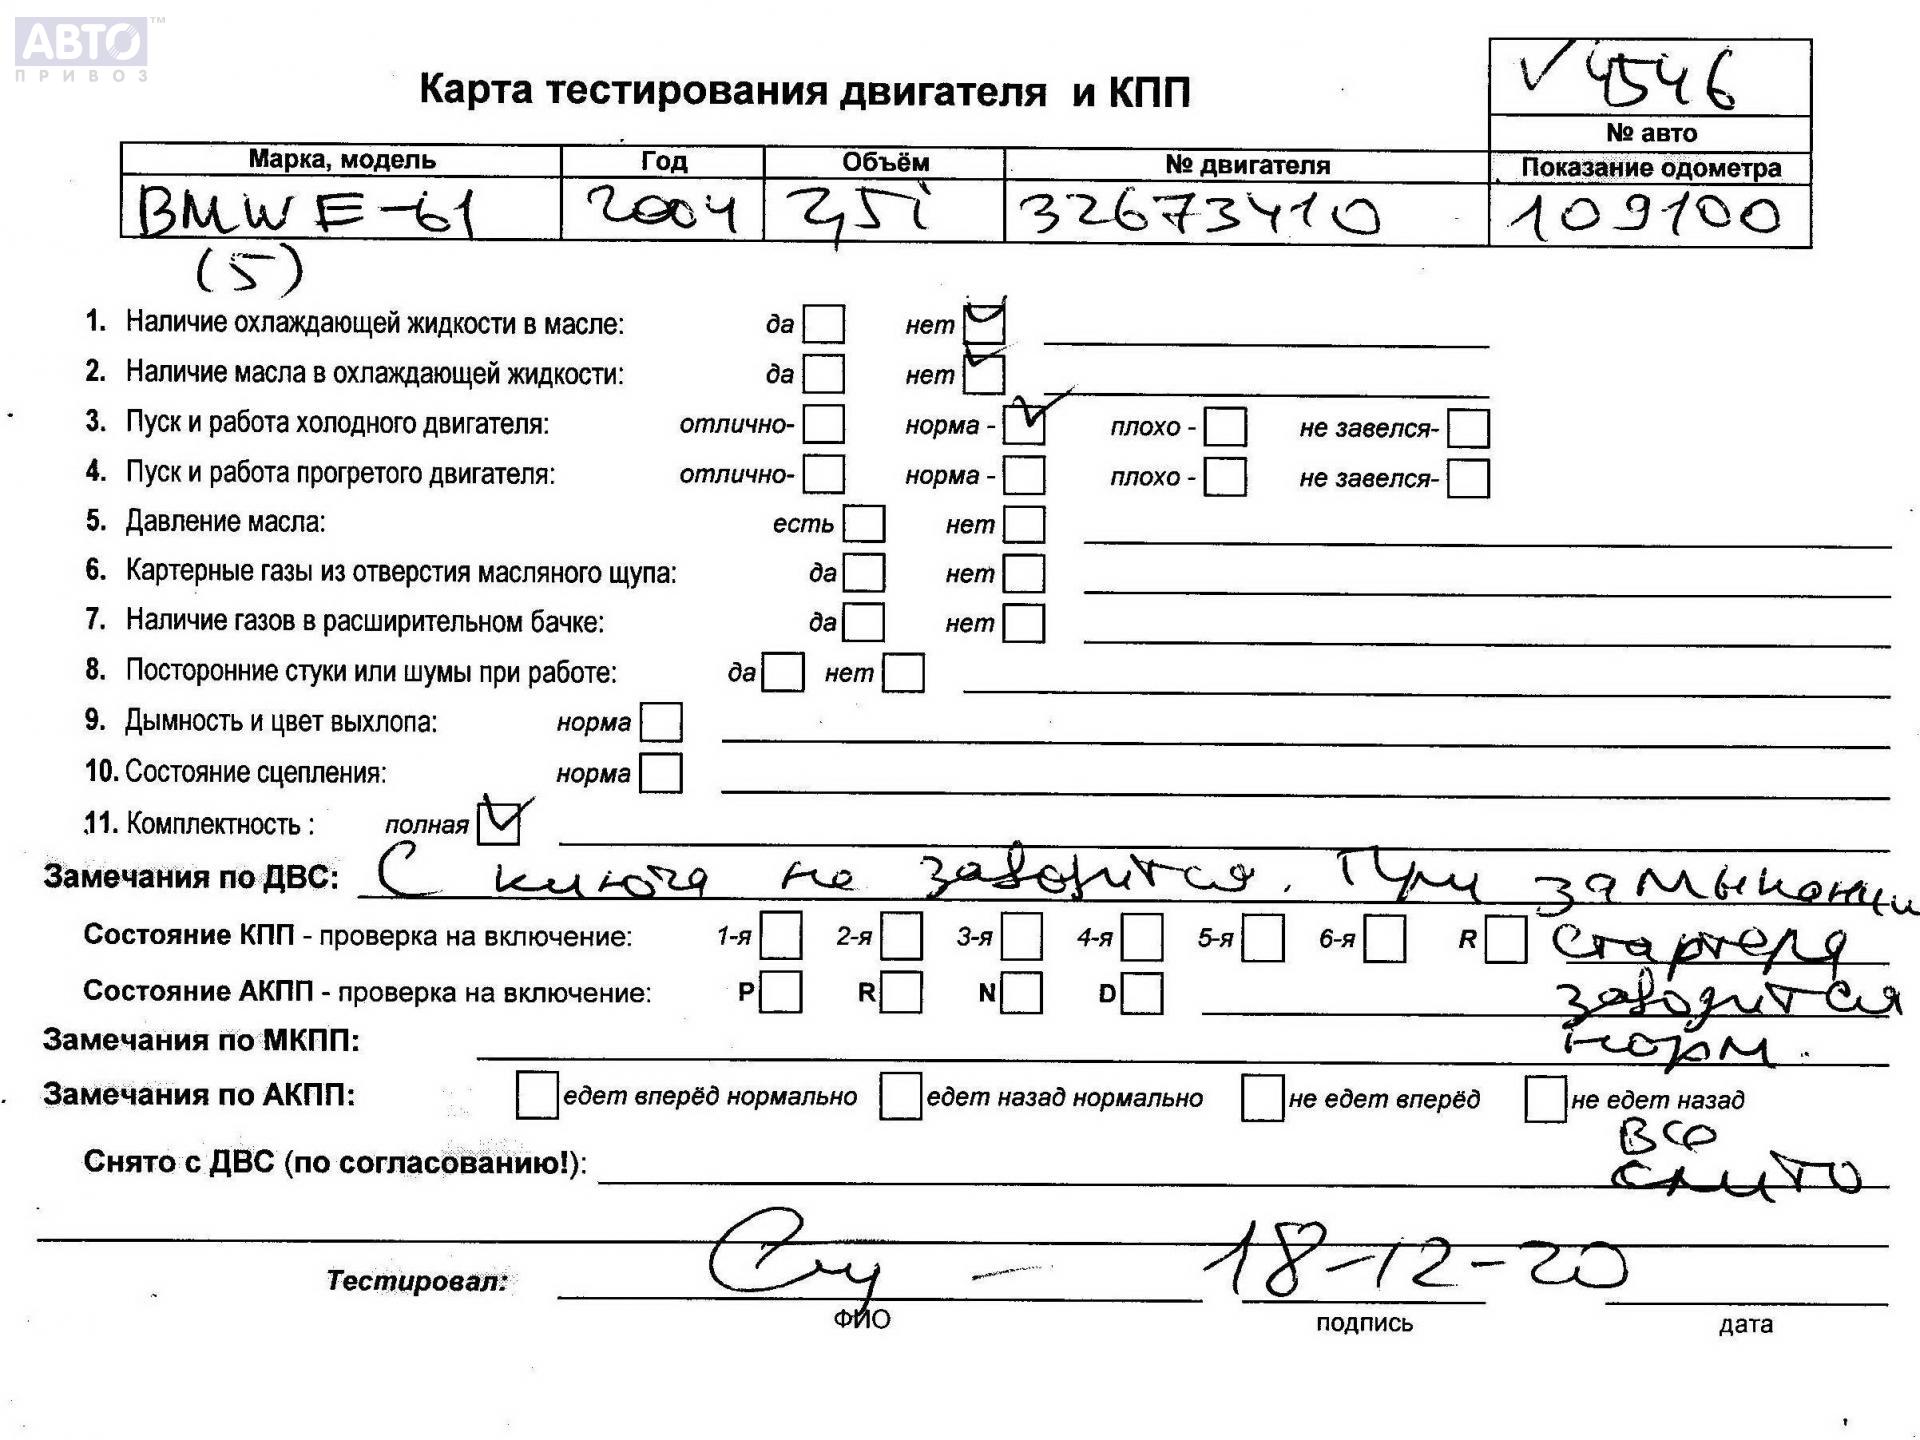 АВТО™
ПРИВОЗ
Карта тестирования двигателя и КПП
√ 4546
№ авто
Марка, модель Год Объём № двигателя Показание одометра
BMW E-61 2004 2,5i 32673410 109100
(5)
1. Наличие охлаждающей жидкости в масле: да нет
2. Наличие масла в охлаждающей жидкости: да нет
3. Пуск и работа холодного двигателя: отлично- норма - плохо - не завелся-
4. Пуск и работа прогретого двигателя: отлично- норма - плохо - не завелся-
5. Давление масла: есть нет
6. Картерные газы из отверстия масляного щупа: да нет
7. Наличие газов в расширительном бачке: да нет
8. Посторонние стуки или шумы при работе: да нет
9. Дымность и цвет выхлопа: норма
10. Состояние сцепления: норма
11. Комплектность : полная
Замечания по ДВС: С ключа не заводится. При замыкании
Состояние КПП - проверка на включение: 1-я 2-я 3-я 4-я 5-я 6-я R стартера
Состояние АКПП - проверка на включение: P R N D заводится
Замечания по МКПП: норм.
Замечания по АКПП: едет вперёд нормально едет назад нормально не едет вперёд не едет назад
Все
Снято с ДВС (по согласованию!): слито
Тестировал: 18-12-20
ФИО подпись дата